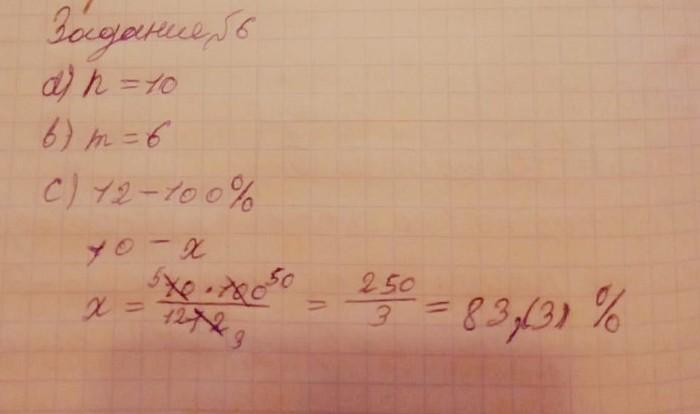 Задание №6
a) n = 10
b) m = 6
c) 12 - 100%
10 - x
x = 5 10 · 100 50 / 12 12 3 = 250 / 3 = 83,(3) %